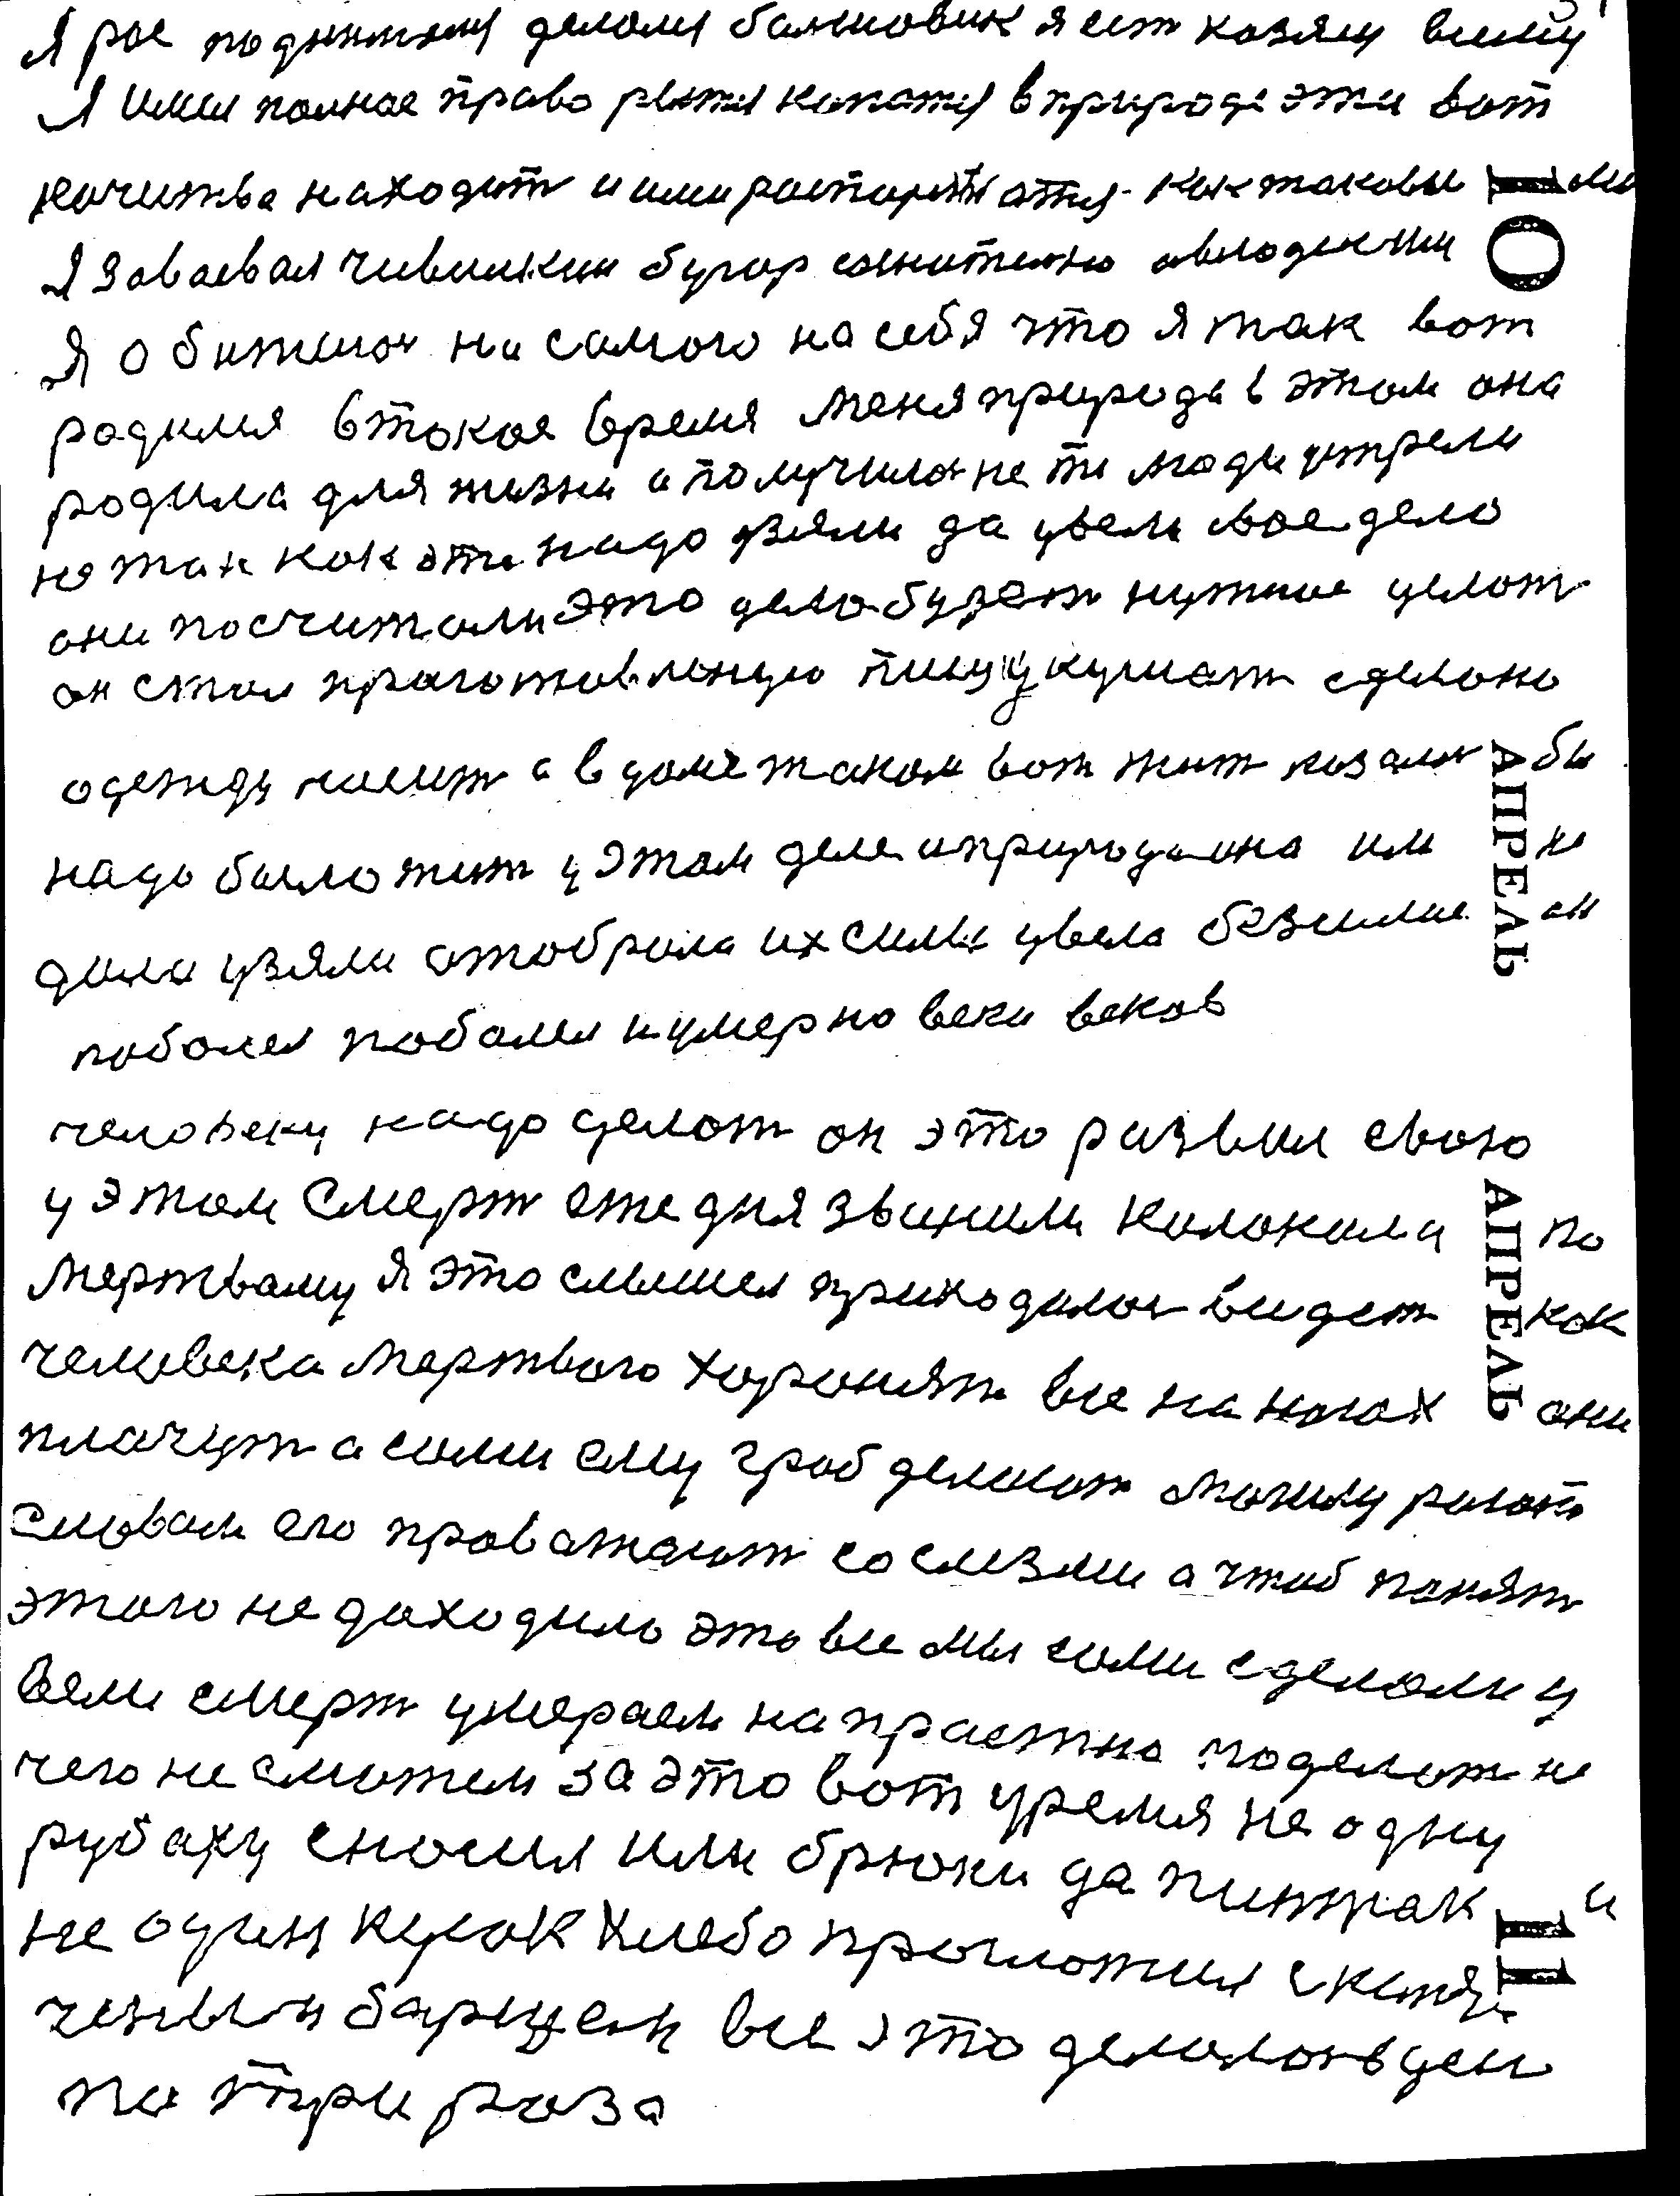 Я рое подниткам делом балшовик я ест хозяин виму
Я имел полное право рытя копатя в природе эти вот
качитва находит и ими распаряжатя как таковы ми
Я завоевал чивилкин бугор сочнително авладел им
Я обитилсн на самого на себя что я так вот
родился втокое время меня природа в этом она
родила для жизни а получилос не ти люди утрели
не так как эти надо узяли да увели свое дело
они посчитоли это дело будет нужное делот
он стал праготовленую пищу кушат сделоно
одежду носит а в доме таком вот жит козалос бы
надо было жит у этом деле априрода она им не
дала узяли отобрала их силы увела безилие он
поболел поболел и умер на веки веков
человеку надо делот он это развил свою
у этом смерт еже дня звинили колокола по
мертваму я это слышел приходилос видет как
человека мертвого хоронят все на ногах они
плачут а сами ему гроб делают могилу роют
словам его праважают со слезми а чтоб понят
этого не доходило это все мы сами сделоли у
вели смерт умераем напрастно поделот не
чего не сможем за это вот уремя не одну
рубаху сносил или брюки да пинжак и
не один кусок хлеба проглотил с кипя
ченым борщем все это делолос в ден
по три роза
Ю
АПРЕЛЬ
АПРЕЛЬ
П